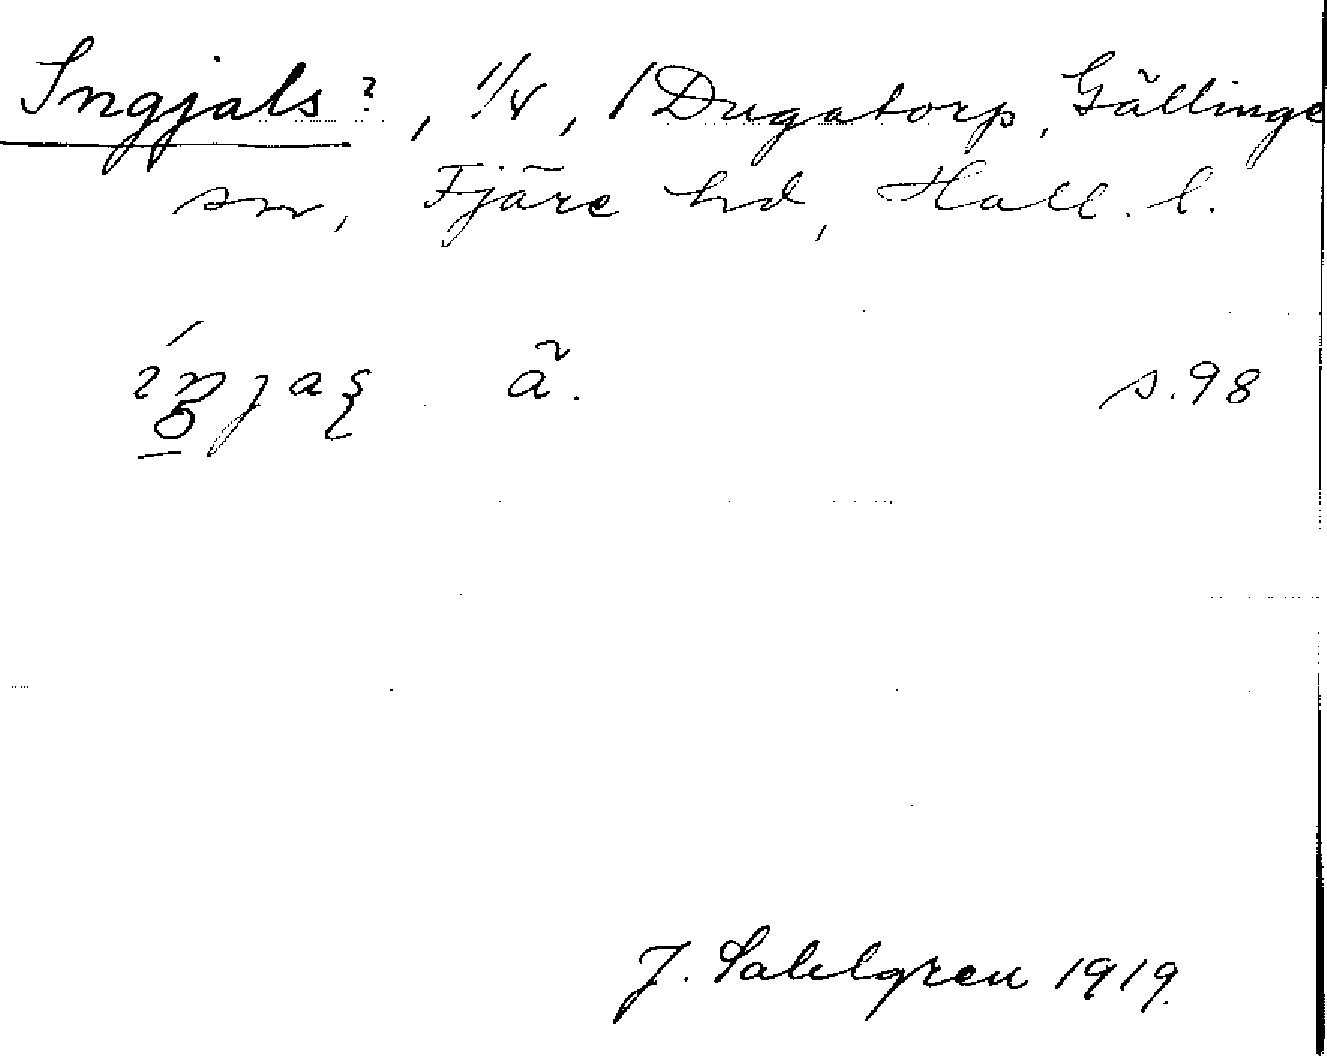 Ingjals?, 1/4, 1 Dugatorp, Gällinge
sn, Fjäre hd, Hall. l.
ã. s. 98
J. Sahlgren 1919.